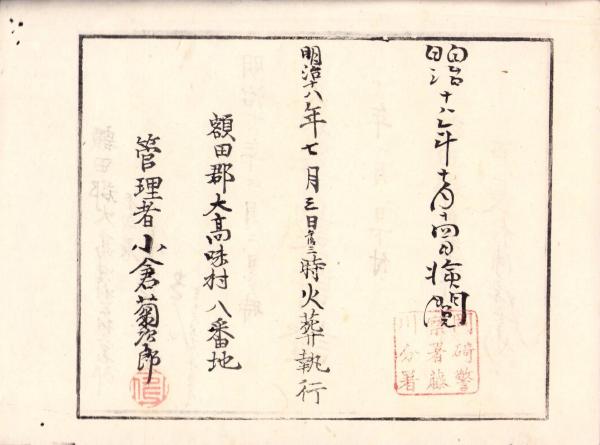 明治十八年十月十四日検閲
岡碕警
察署藤
川分署
明治十八年七月三日午后三時火葬執行
額田郡大高味村八番地
管理者小倉菊次郎